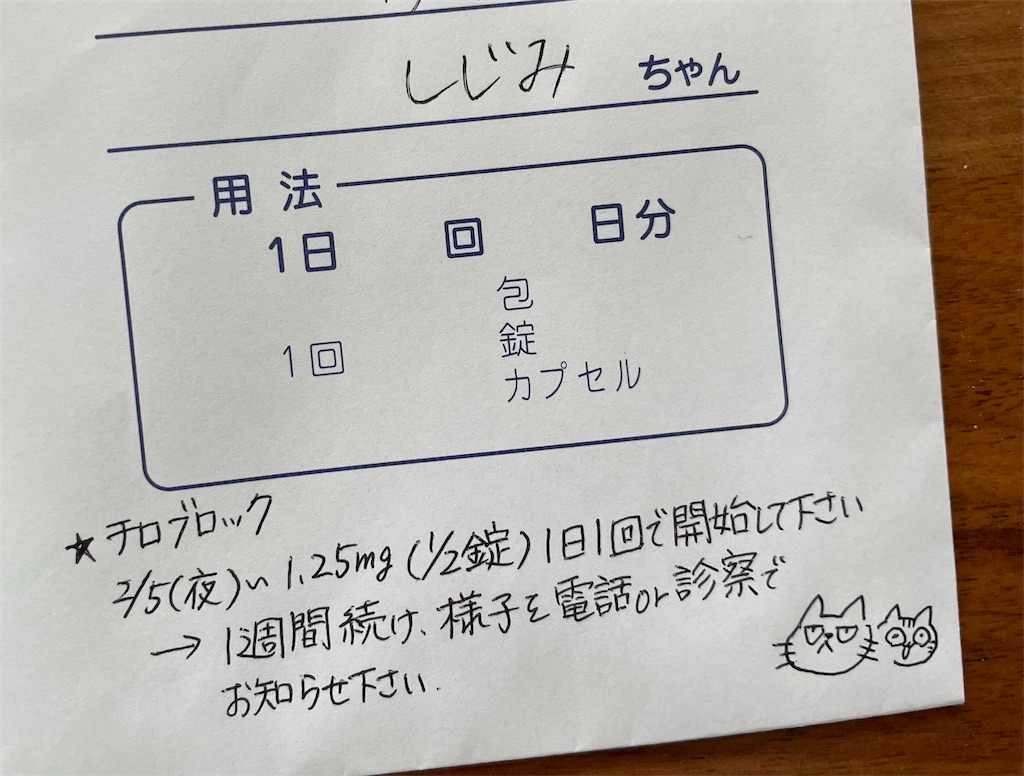 しじみ ちゃん
用法
1日 回 日分
包
1回 錠
カプセル
★チロブロック
2/5(夜)〜 1.25mg(1/2錠)1日1回で開始して下さい
→ 1週間続け、様子を電話or診察で
お知らせ下さい.